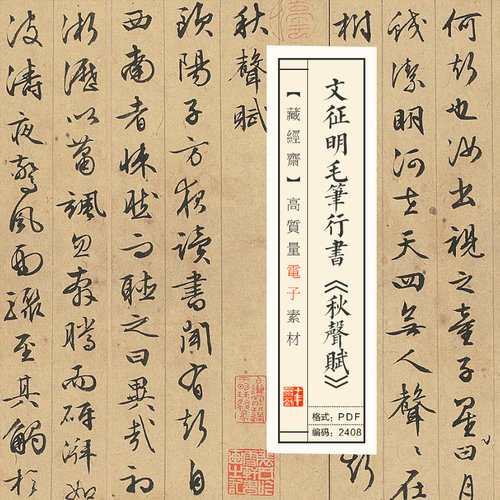 何聲也汝出視之童子星月
皎潔明河在天四無人聲〻在
樹
秋聲賦
歐陽子方夜讀書聞有聲自
西南者悚然而聽之曰異哉初
淅瀝以蕭颯忽奔騰而砰湃如
波濤夜驚風雨驟至其觸於
文征明毛筆行書《秋聲賦》
【藏經齋】高質量電子素材
格式：PDF
编码：2408